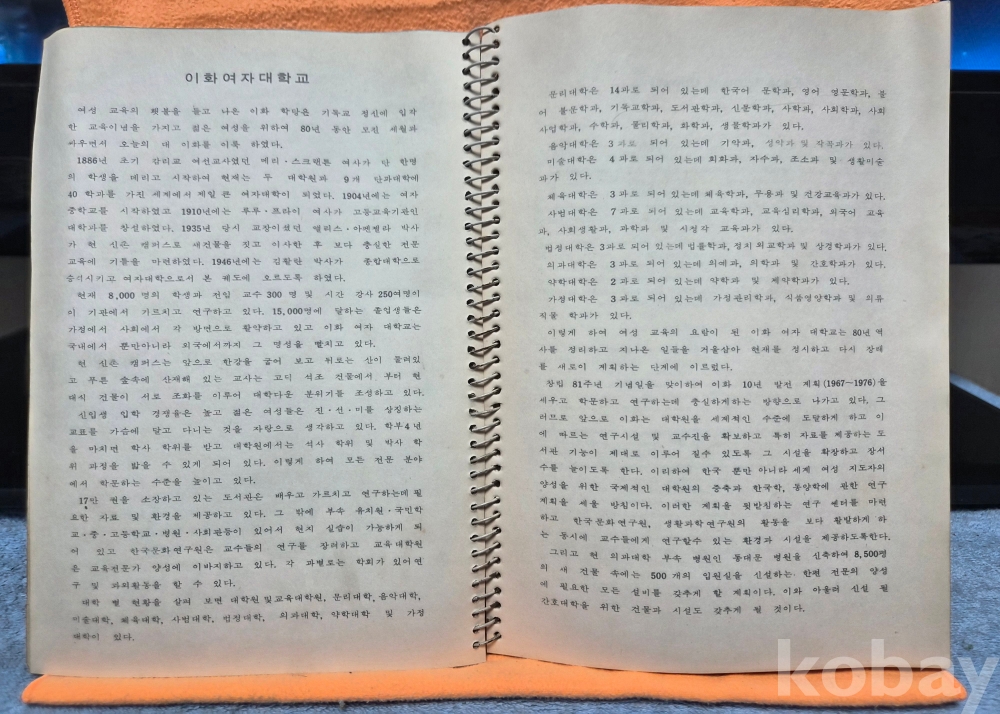 이화여자대학교
여성 교육의 횃불을 들고 나온 이화 학당은 기독교 정신에 입각
한 교육이념을 가지고 젊은 여성을 위하여 80년 동안 모진 세월과
싸우면서 오늘의 대 이화를 이룩 하였다.
1886년 초기 감리교 여선교사였던 메리·스크랜튼 여사가 단 한명
의 학생을 데리고 시작하여 현재는 두 대학원과 9개 단과대학에
40 학과를 가진 세계에서 제일 큰 여자대학이 되였다. 1904년에는 여자
중학교를 시작하였고 1910년에는 루루·프라이 여사가 고등교육기관인
대학과를 창설하였다. 1935년 당시 교장이셨던 앨리스·아펜젤라 박사
가 현 신촌 캠퍼스로 새건물을 짓고 이사한 후 보다 충실한 전문
교육에 기틀을 마련하였다. 1946년에는 김활란 박사가 종합대학으로
승격시키고 여자대학으로서 본 궤도에 오르도록 하였다.
현재 8,000명의 학생과 전임 교수 300명 및 시간 강사 250여명이
이 기관에서 가르치고 연구하고 있다. 15,000명에 달하는 졸업생들은
가정에서 사회에서 각 방면으로 활약하고 있고 이화 여자 대학교는
국내에서 뿐만아니라 외국에서까지 그 명성을 떨치고 있다.
현 신촌 캠퍼스는 앞으로 한강을 굽어 보고 뒤로는 산이 둘려있
고 푸른 숲속에 산재해 있는 교사는 고딕 석조 건물에서 부터 현
대식 건물이 서로 조화를 이루어 대학다운 분위기를 조성하고 있다.
신입생 입학 경쟁율은 높고 젊은 여성들은 진·선·미를 상징하는
교표를 가슴에 달고 다니는 것을 자랑으로 생각하고 있다. 학부 4년
을 마치면 학사 학위를 받고 대학원에서는 석사 학위 및 박사 학
위 과정을 밟을 수 있게 되어 있다. 이렇게 하여 모든 전문 분야
에서 학문하는 수준을 높이고 있다.
17만 권을 소장하고 있는 도서관은 배우고 가르치고 연구하는데 필
요한 자료 및 환경을 제공하고 있다. 그 밖에 부속 유치원·국민학
교·중·고등학교·병원·사회관등이 있어서 현지 실습이 가능하게 되
어 있고 한국문화연구원은 교수들의 연구를 장려하고 교육대학원
은 교육전문가 양성에 이바지하고 있다. 각 과별로는 학회가 있어 연
구 및 과외활동을 할 수 있다.
대학 별 현황을 살펴 보면 대학원 및 교육대학원, 문리대학, 음악대학,
미술대학, 체육대학, 사범대학, 법정대학, 의과대학, 약학대학 및 가정
대학이 있다.
문리대학은 14과로 되어 있는데 한국어 문학과, 영어 영문학과, 불
어 불문학과, 기독교학과, 도서관학과, 신문학과, 사학과, 사회학과, 사회
사업학과, 수학과, 물리학과, 화학과, 생물학과가 있다.
음악대학은 3과로 되어 있는데 기악과, 성악과 및 작곡과가 있다.
미술대학은 4과로 되어 있는데 회화과, 자수과, 조소과 및 생활미술
과가 있다.
체육대학은 3과로 되어 있는데 체육학과, 무용과 및 건강교육과가 있다.
사범대학은 7과로 되어 있는데 교육학과, 교육심리학과, 외국어 교육
과, 사회생활과, 과학과 및 시청각 교육과가 있다.
법정대학은 3과로 되어 있는데 법률학과, 정치외교학과 및 상경학과가 있다.
의과대학은 3과로 되어 있는데 의예과, 의학과 및 간호학과가 있다.
약학대학은 2과로 되어 있는데 약학과 및 제약학과가 있다.
가정대학은 3과로 되어있는데 가정관리학과, 식품영양학과 및 의류
직물 학과가 있다.
이렇게 하여 여성 교육의 요람이 된 이화 여자 대학교는 80년 역
사를 정리하고 지나온 일들을 거울삼아 현재를 정시하고 다시 장래
를 새로이 계획하는 단계에 이르렀다.
창립 81주년 기념일을 맞이하여 이화 10년 발전 계획(1967~1976)을
세우고 학문하고 연구하는데 충실하게하는 방향으로 나가고 있다. 그
러므로 앞으로 이화는 대학원을 세계적인 수준에 도달하게 하고 이
에 따르는 연구시설 및 교수진을 확보하고 특히 자료를 제공하는 도
서관 기능이 제대로 이루어 질수 있도록 그 시설을 확장하고 장서
수를 늘이도록 한다. 이리하여 한국 뿐만 아니라 세계 여성 지도자의
양성을 위한 국제적인 대학원의 증축과 한국학, 동양학에 관한 연구
계획을 세울 방침이다. 이러한 계획을 뒷받침하는 연구 쎈터를 마련
하고 한국문화연구원, 생활과학연구원의 활동을 보다 활발하게 하
는 동시에 교수들에게 연구할수 있는 환경과 시설을 제공하도록한다.
그리고 현 의과대학 부속 병원인 동대문 병원을 신축하여 8,500평
의 새 건물 속에는 500개의 입원실을 신설하는 한편 전문의 양성
에 필요한 모든 설비를 갖추게 할 계획이다. 이와 아울러 신설 될
간호대학을 위한 건물과 시설도 갖추게 될 것이다.
kobay